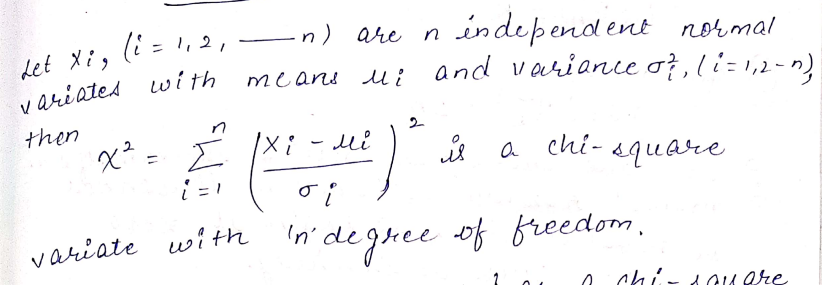 Let Xi, (i = 1, 2, — n) are n independent normal
variates with means μi and variance σi², (i=1,2-n),
then
χ² = Σ_{i=1}^{n} ((Xi - μi)/σi)² is a chi-square
variate with 'n' degree of freedom.
a chi-square